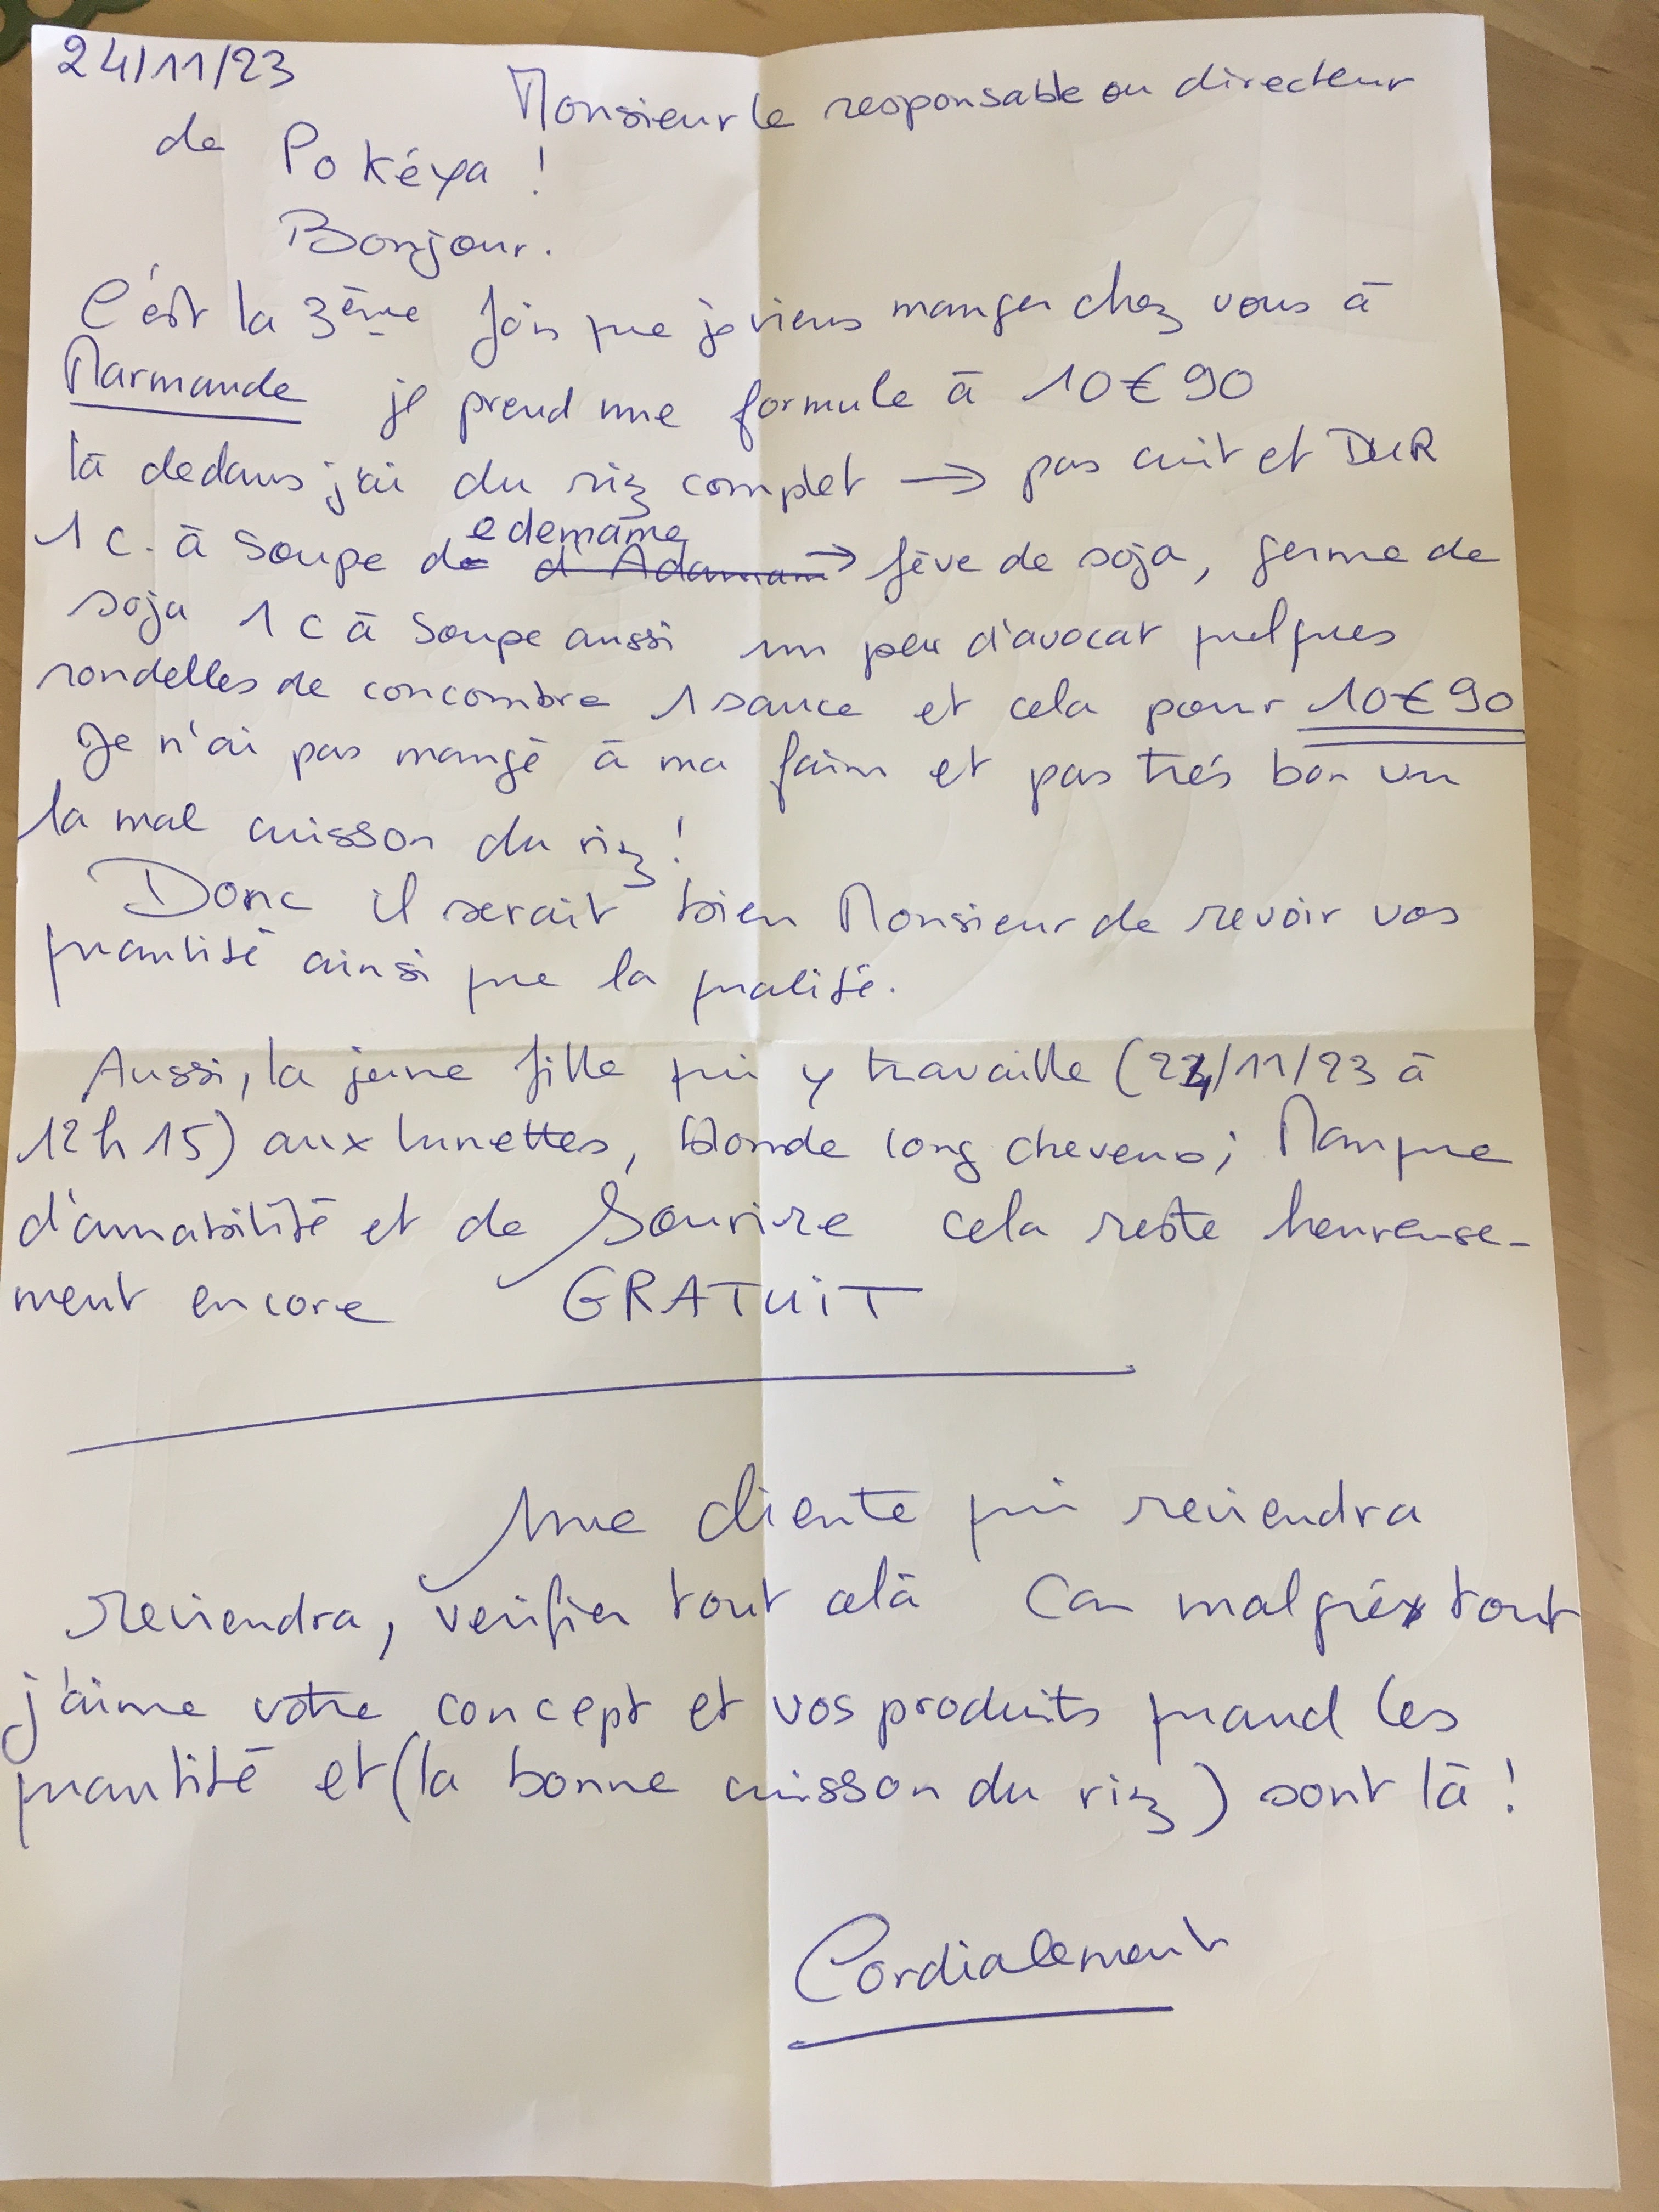 24/11/23
Monsieur le responsable ou directeur
de Pokéya !
Bonjour.
C'est la 3ème fois que je viens manger chez vous à
Marmande je prend une formule à 10€90
là dedans j'ai du riz complet → pas cuit et DUR
1 c. à soupe de edemame → fève de soja, germe de
soja 1 c à soupe aussi un peu d'avocat quelques
rondelles de concombre 1 sauce et cela pour 10€90
Je n'ai pas mangé à ma faim et pas très bon vu
la mal cuisson du riz !
Donc il serait bien Monsieur de revoir vos
quantité ainsi que la qualité.
Aussi, la jeune fille qui y travaille (24/11/23 à
12h15) aux lunettes, blonde long cheveux; Manque
d'amabilité et de Sourire cela reste heureuse-
ment encore GRATUIT
Une cliente qui reviendra
reviendra, verifier tout celà Car malgré tout
j'aime votre concept et vos produits quand les
quantité et (la bonne cuisson du riz) sont là !
Cordialement